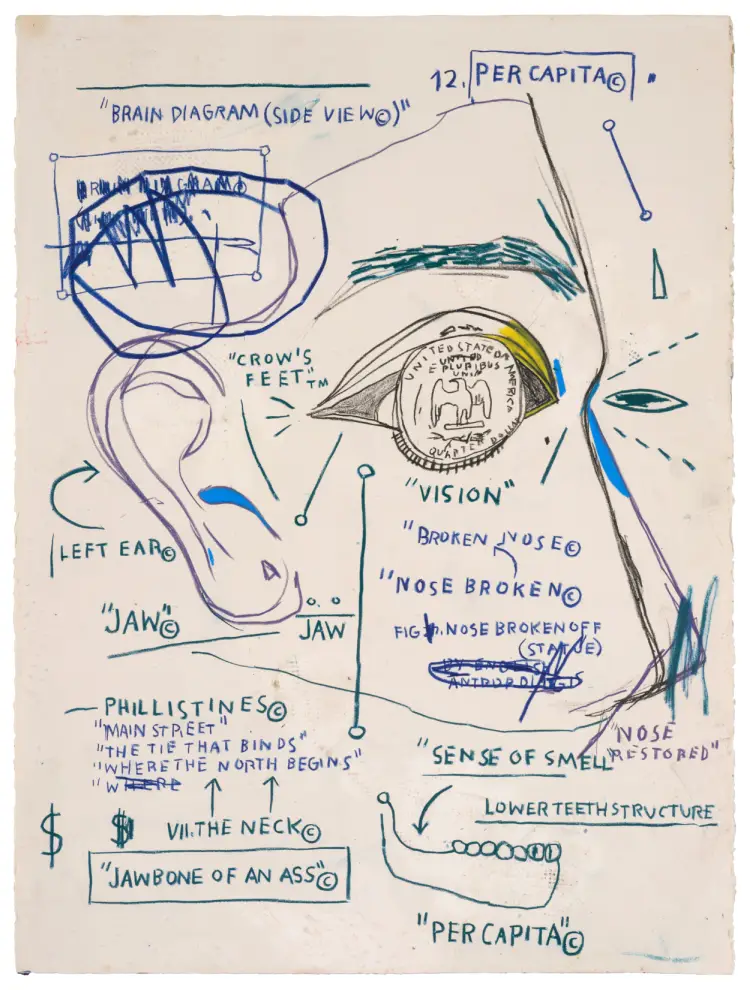 12. PER CAPITA©
"BRAIN DIAGRAM (SIDE VIEW©)"
"CROW'S
FEET"TM
UNITED STATES OF AMERICA
E PLURIBUS
UNUM
QUARTER DOLLAR
"VISION"
"BROKEN NOSE©
"NOSE BROKEN©
LEFT EAR©
"JAW"©
JAW
FIG. NOSE BROKEN OFF
(STATUE)
BY ENGLISH
PHILLISTINES©
"MAIN STREET"
"THE TIE THAT BINDS"
"WHERE THE NORTH BEGINS"
"WHERE
"NOSE
RESTORED"
"SENSE OF SMELL
LOWER TEETH STRUCTURE
$ $ VII. THE NECK©
"JAWBONE OF AN ASS"©
"PER CAPITA"©